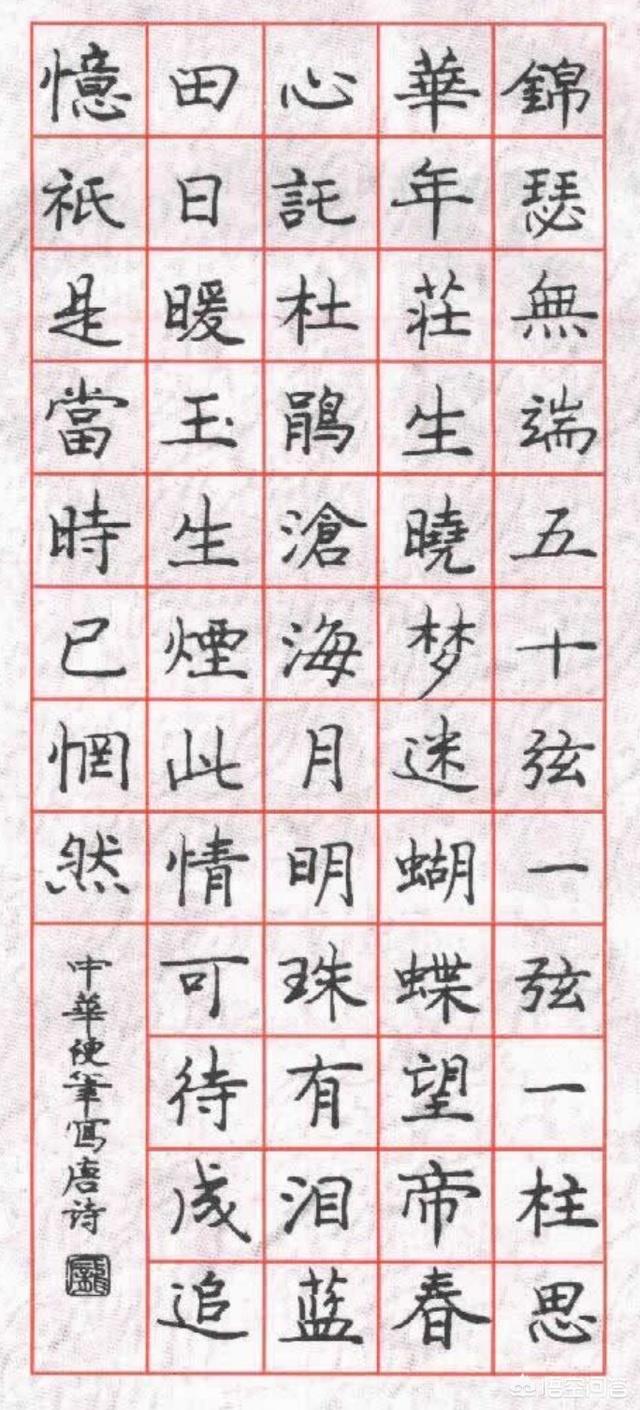 錦瑟無端五十弦一弦一柱思
華年莊生曉梦迷蝴蝶望帝春
心託杜鹃滄海月明珠有泪蓝
田日暖玉生煙此情可待成追
憶祇是當時已惘然
中華硬筆寫唐诗
悟空问答